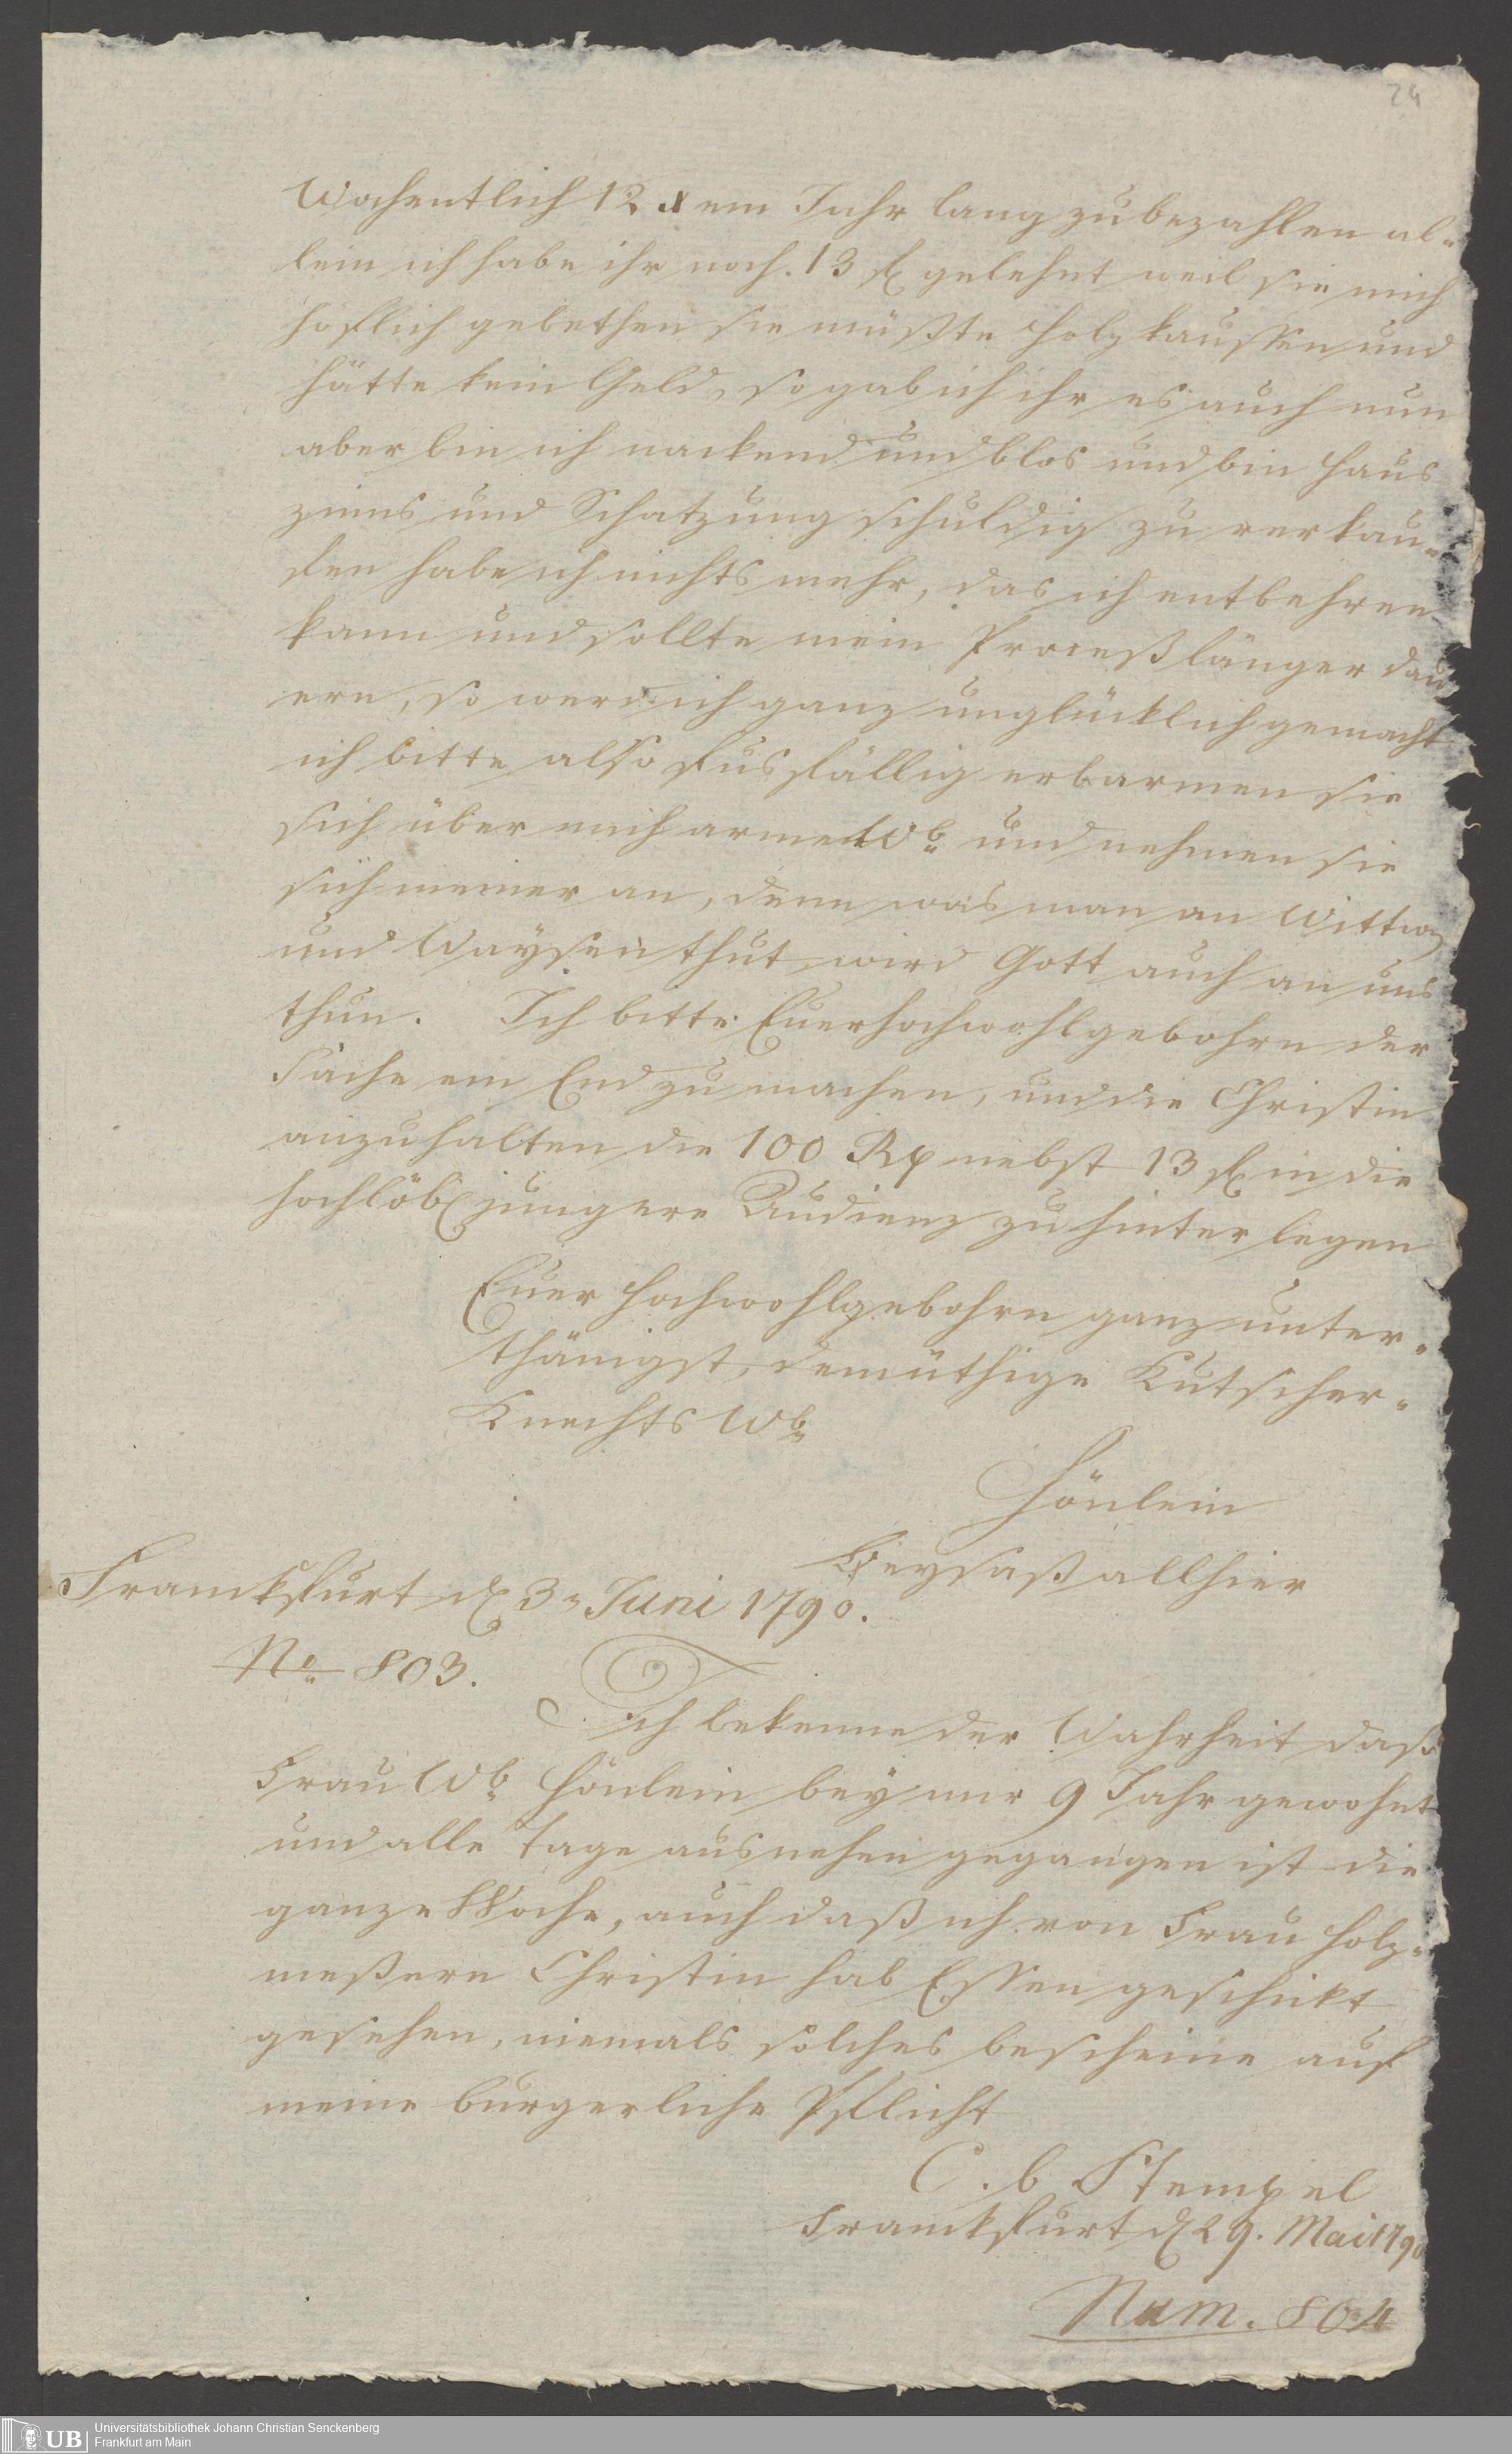 24
Wochentlich 12 x ein Jahr lang zu bezahlen al-
lein ich habe ihr noch. 13 fl gelehnt weil sie mich
höflich gebethen sie müßte Holz kauffen und
hätte kein Geld, so gab ich ihr es auch nun
aber bin ich nackend und blos und bin Haus
zinns und Schatzung schuldig zu verkau-
fen habe ich nichts mehr, das ich entbehren
kann und sollte mein Proceß länger dau
ern, so werd ich ganz unglücklich gemacht
ich bitte also fusfällig erbarmen sie
sich über mich arme Wb. und nehmen sie
sich meiner an, denn was man an Wittwen
und Waysen thut wird Gott auch an uns
thun. Ich bitte Euer Hochwohlgebohrn der
Sache ein End zu machen, und die Christin
anzuhalten die 100 Rp nebst 13 fl in die
hochlöbl jüngere Audienz zu hinterlegen
Euer Hochwohlgebohrn ganz unter-
thänigst, demüthige Kutscher-
Knechts Wb.
Hönlein
Beysaß allhier
Franckfurt d. 3. Juni 1790.
No. 803.
Ich bekenne der Wahrheit daß
Frau Wb. Hönlein bey mir 9 Jahr gewohnt
und alle Tage aus nehen gegangen ist die
ganze Woche, auch daß ich von Frau Holz-
meßern Christin hab Essen geschickt
gesehen, niemals solches bescheine auf
meine burgerliche Pflicht
C. b Stempel
Franckfurt d 29. Mai 1790
Num. 804
UB Universitätsbibliothek Johann Christian Senckenberg
Frankfurt am Main